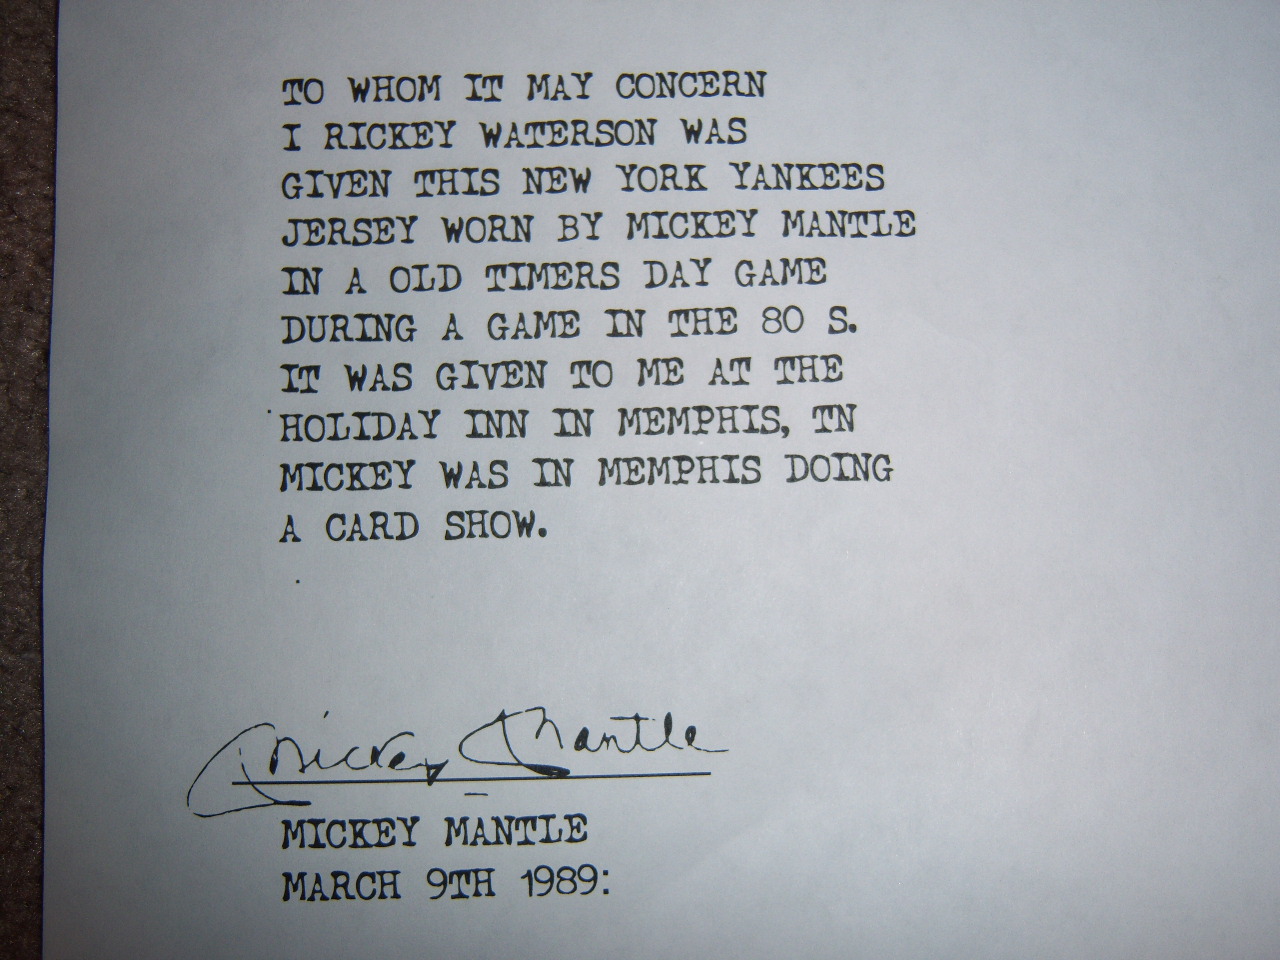 TO WHOM IT MAY CONCERN
I RICKEY WATERSON WAS
GIVEN THIS NEW YORK YANKEES
JERSEY WORN BY MICKEY MANTLE
IN A OLD TIMERS DAY GAME
DURING A GAME IN THE 80 S.
IT WAS GIVEN TO ME AT THE
HOLIDAY INN IN MEMPHIS, TN
MICKEY WAS IN MEMPHIS DOING
A CARD SHOW.
Mickey Mantle
MICKEY MANTLE
MARCH 9TH 1989: